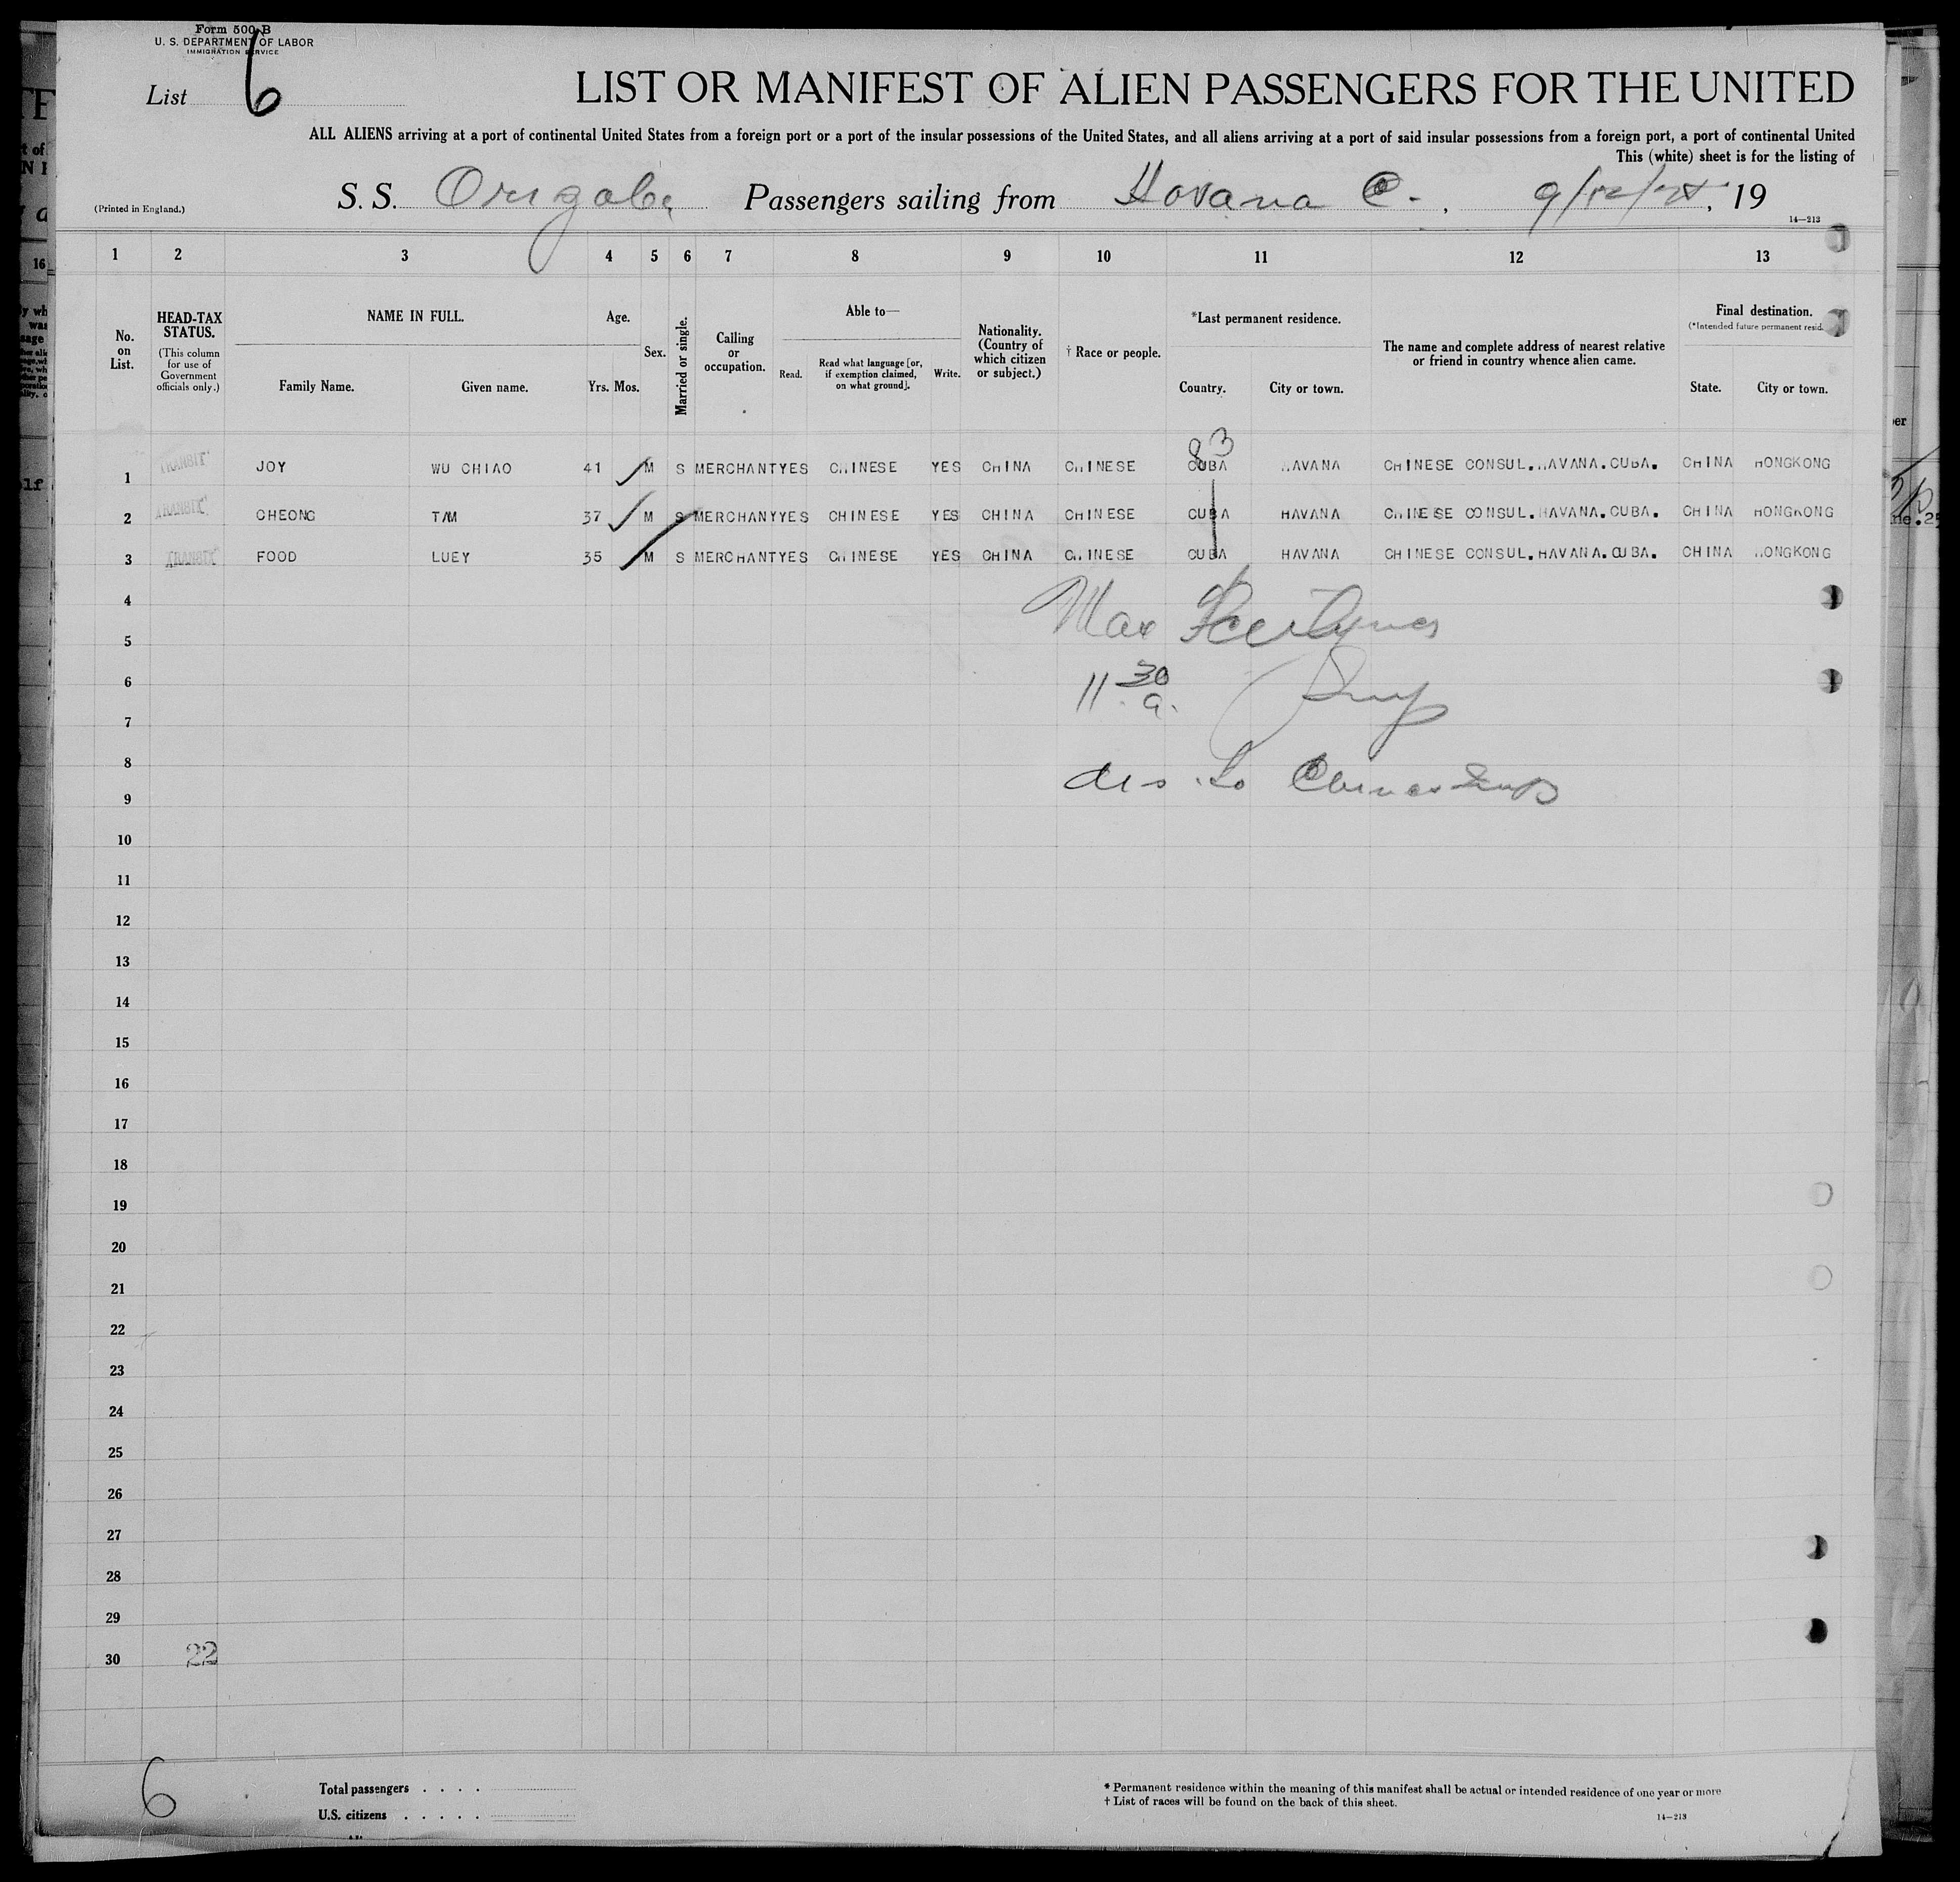 Form 500 B
U. S. DEPARTMENT OF LABOR
IMMIGRATION SERVICE
List 6
LIST OR MANIFEST OF ALIEN PASSENGERS FOR THE UNITED
ALL ALIENS arriving at a port of continental United States from a foreign port or a port of the insular possessions of the United States, and all aliens arriving at a port of said insular possessions from a foreign port, a port of continental United
This (white) sheet is for the listing of
(Printed in England.)
S. S. Orizaba Passengers sailing from Havana C. 9/12/ , 19
14—213
1 2 3 4 5 6 7 8 9 10 11 12 13
No. on List.
HEAD-TAX STATUS.
(This column for use of Government officials only.)
NAME IN FULL.
Family Name. Given name.
Age.
Yrs. Mos.
Sex.
Married or single.
Calling or occupation.
Able to—
Read. Read what language [or, if exemption claimed, on what ground]. Write.
Nationality. (Country of which citizen or subject.)
† Race or people.
*Last permanent residence.
Country. City or town.
The name and complete address of nearest relative or friend in country whence alien came.
Final destination.
(*Intended future permanent resid
State. City or town.
83
1 TRANSIT JOY WU CHIAO 41 M S MERCHANT YES CHINESE YES CHINA CHINESE CUBA HAVANA CHINESE CONSUL.HAVANA.CUBA. CHINA HONGKONG
2 TRANSIT CHEONG TAM 37 M S MERCHANY YES CHINESE YES CHINA CHINESE CUBA HAVANA CHINESE CONSUL.HAVANA.CUBA. CHINA HONGKONG
3 TRANSIT FOOD LUEY 35 M S MERCHANT YES CHINESE YES CHINA CHINESE CUBA HAVANA CHINESE CONSUL.HAVANA.CUBA. CHINA HONGKONG
4
Max
5
6
11 30 a. Insp
7
8
dis to Chinese Insp
9
10
11
12
13
14
15
16
17
18
19
20
21
22
23
24
25
26
27
28
29
30 22
6
Total passengers . . . .
U.S. citizens . . . . .
* Permanent residence within the meaning of this manifest shall be actual or intended residence of one year or more
† List of races will be found on the back of this sheet.
14—213